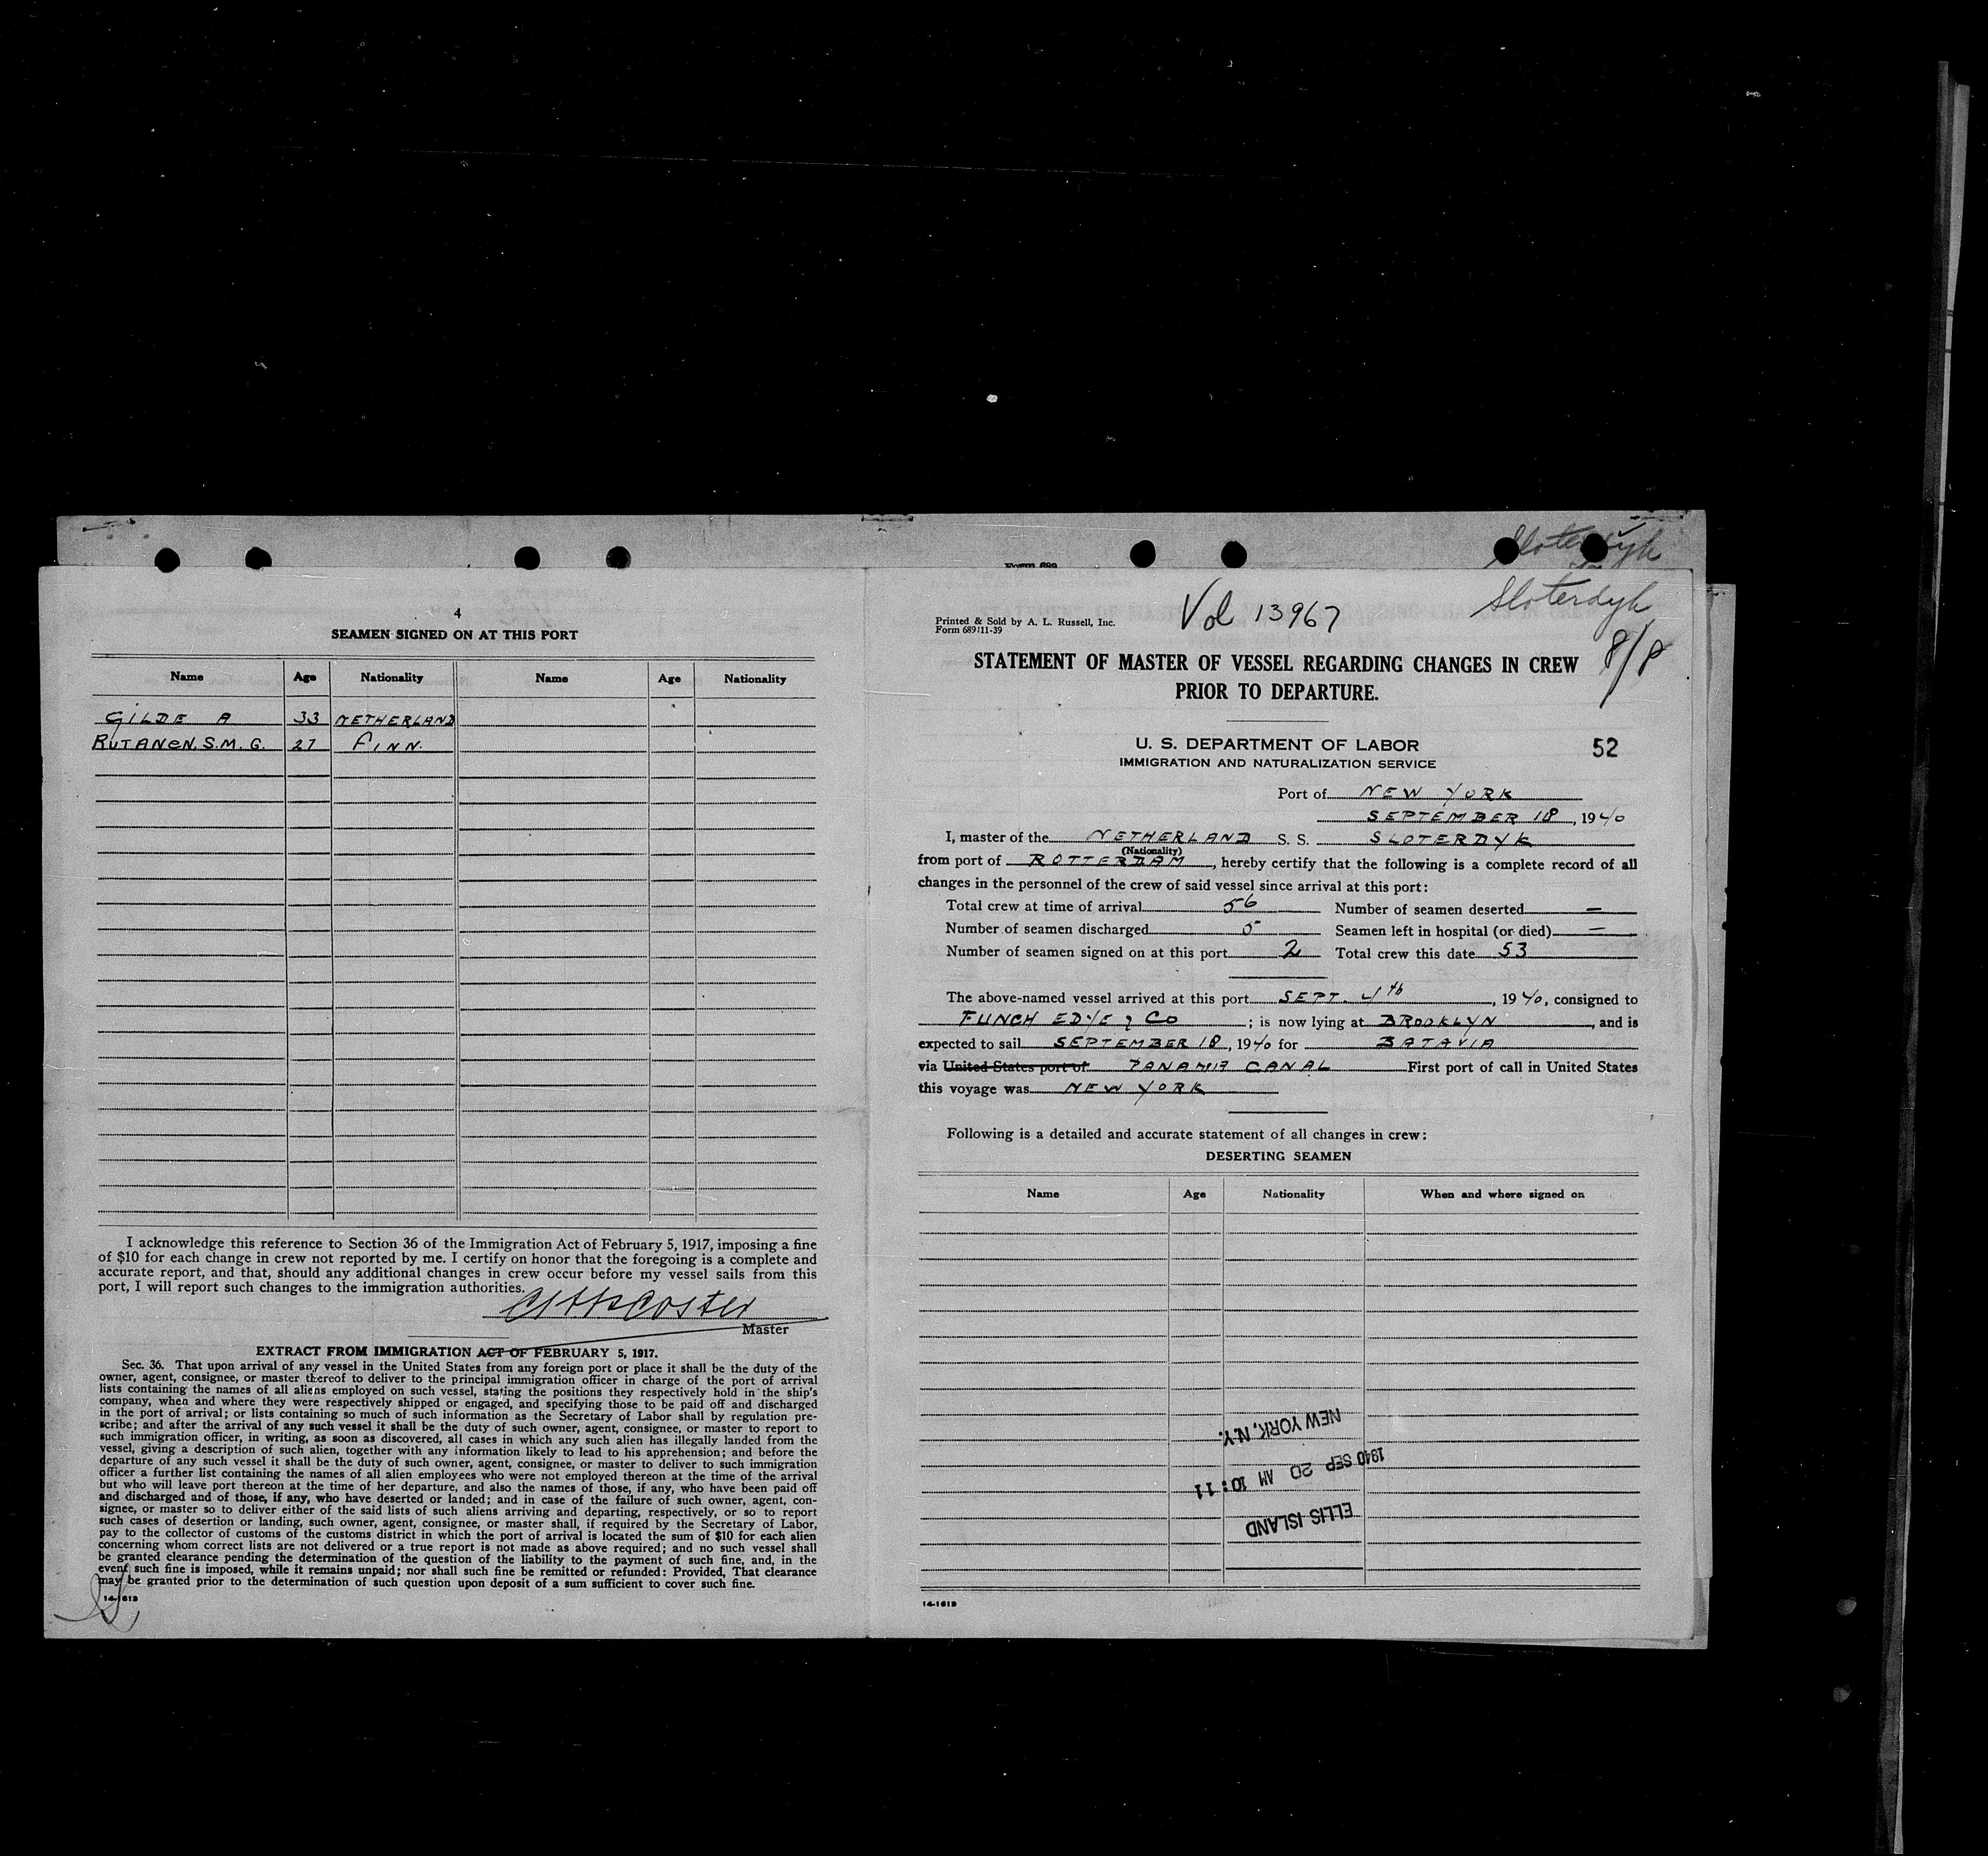 4
SEAMEN SIGNED ON AT THIS PORT
Name Age Nationality Name Age Nationality
GILDE A 33 NETHERLAND
RUTANEN. S.M. G. 27 FINN.
I acknowledge this reference to Section 36 of the Immigration Act of February 5, 1917, imposing a fine
of $10 for each change in crew not reported by me. I certify on honor that the foregoing is a complete and
accurate report, and that, should any additional changes in crew occur before my vessel sails from this
port, I will report such changes to the immigration authorities.
Master
EXTRACT FROM IMMIGRATION ACT OF FEBRUARY 5, 1917.
Sec. 36. That upon arrival of any vessel in the United States from any foreign port or place it shall be the duty of the
owner, agent, consignee, or master thereof to deliver to the principal immigration officer in charge of the port of arrival
lists containing the names of all aliens employed on such vessel, stating the positions they respectively hold in the ship's
company, when and where they were respectively shipped or engaged, and specifying those to be paid off and discharged
in the port of arrival; or lists containing so much of such information as the Secretary of Labor shall by regulation pre-
scribe; and after the arrival of any such vessel it shall be the duty of such owner, agent, consignee, or master to report to
such immigration officer, in writing, as soon as discovered, all cases in which any such alien has illegally landed from the
vessel, giving a description of such alien, together with any information likely to lead to his apprehension; and before the
departure of any such vessel it shall be the duty of such owner, agent, consignee, or master to deliver to such immigration
officer a further list containing the names of all alien employees who were not employed thereon at the time of the arrival
but who will leave port thereon at the time of her departure, and also the names of those, if any, who have been paid off
and discharged and of those, if any, who have deserted or landed; and in case of the failure of such owner, agent, con-
signee, or master so to deliver either of the said lists of such aliens arriving and departing, respectively, or so to report
such cases of desertion or landing, such owner, agent, consignee, or master shall, if required by the Secretary of Labor,
pay to the collector of customs of the customs district in which the port of arrival is located the sum of $10 for each alien
concerning whom correct lists are not delivered or a true report is not made as above required; and no such vessel shall
be granted clearance pending the determination of the question of the liability to the payment of such fine, and, in the
event such fine is imposed, while it remains unpaid; nor shall such fine be remitted or refunded: Provided, That clearance
may be granted prior to the determination of such question upon deposit of a sum sufficient to cover such fine.
14-1613
Sloterdyk
Form 689
Sloterdyk
Vol 13967
Printed & Sold by A. L. Russell, Inc.
Form 689:11-39
STATEMENT OF MASTER OF VESSEL REGARDING CHANGES IN CREW
PRIOR TO DEPARTURE.
U. S. DEPARTMENT OF LABOR
52
IMMIGRATION AND NATURALIZATION SERVICE
Port of NEW YORK
SEPTEMBER 18, 1940
I, master of the NETHERLAND S. S. SLOTERDYK
(Nationality)
from port of ROTTERDAM, hereby certify that the following is a complete record of all
changes in the personnel of the crew of said vessel since arrival at this port:
Total crew at time of arrival 56 Number of seamen deserted —
Number of seamen discharged 5 Seamen left in hospital (or died) —
Number of seamen signed on at this port 2 Total crew this date 53
The above-named vessel arrived at this port SEPT. 4th, 1940, consigned to
FUNCH EDYE & CO; is now lying at BROOKLYN, and is
expected to sail SEPTEMBER 18, 1940 for BATAVIA
via United States port of PANAMA CANAL First port of call in United States
this voyage was NEW YORK
Following is a detailed and accurate statement of all changes in crew:
DESERTING SEAMEN
Name Age Nationality When and where signed on
ELLIS ISLAND
1940 SEP 20 AM 10:11
NEW YORK, N.Y.
14-1613